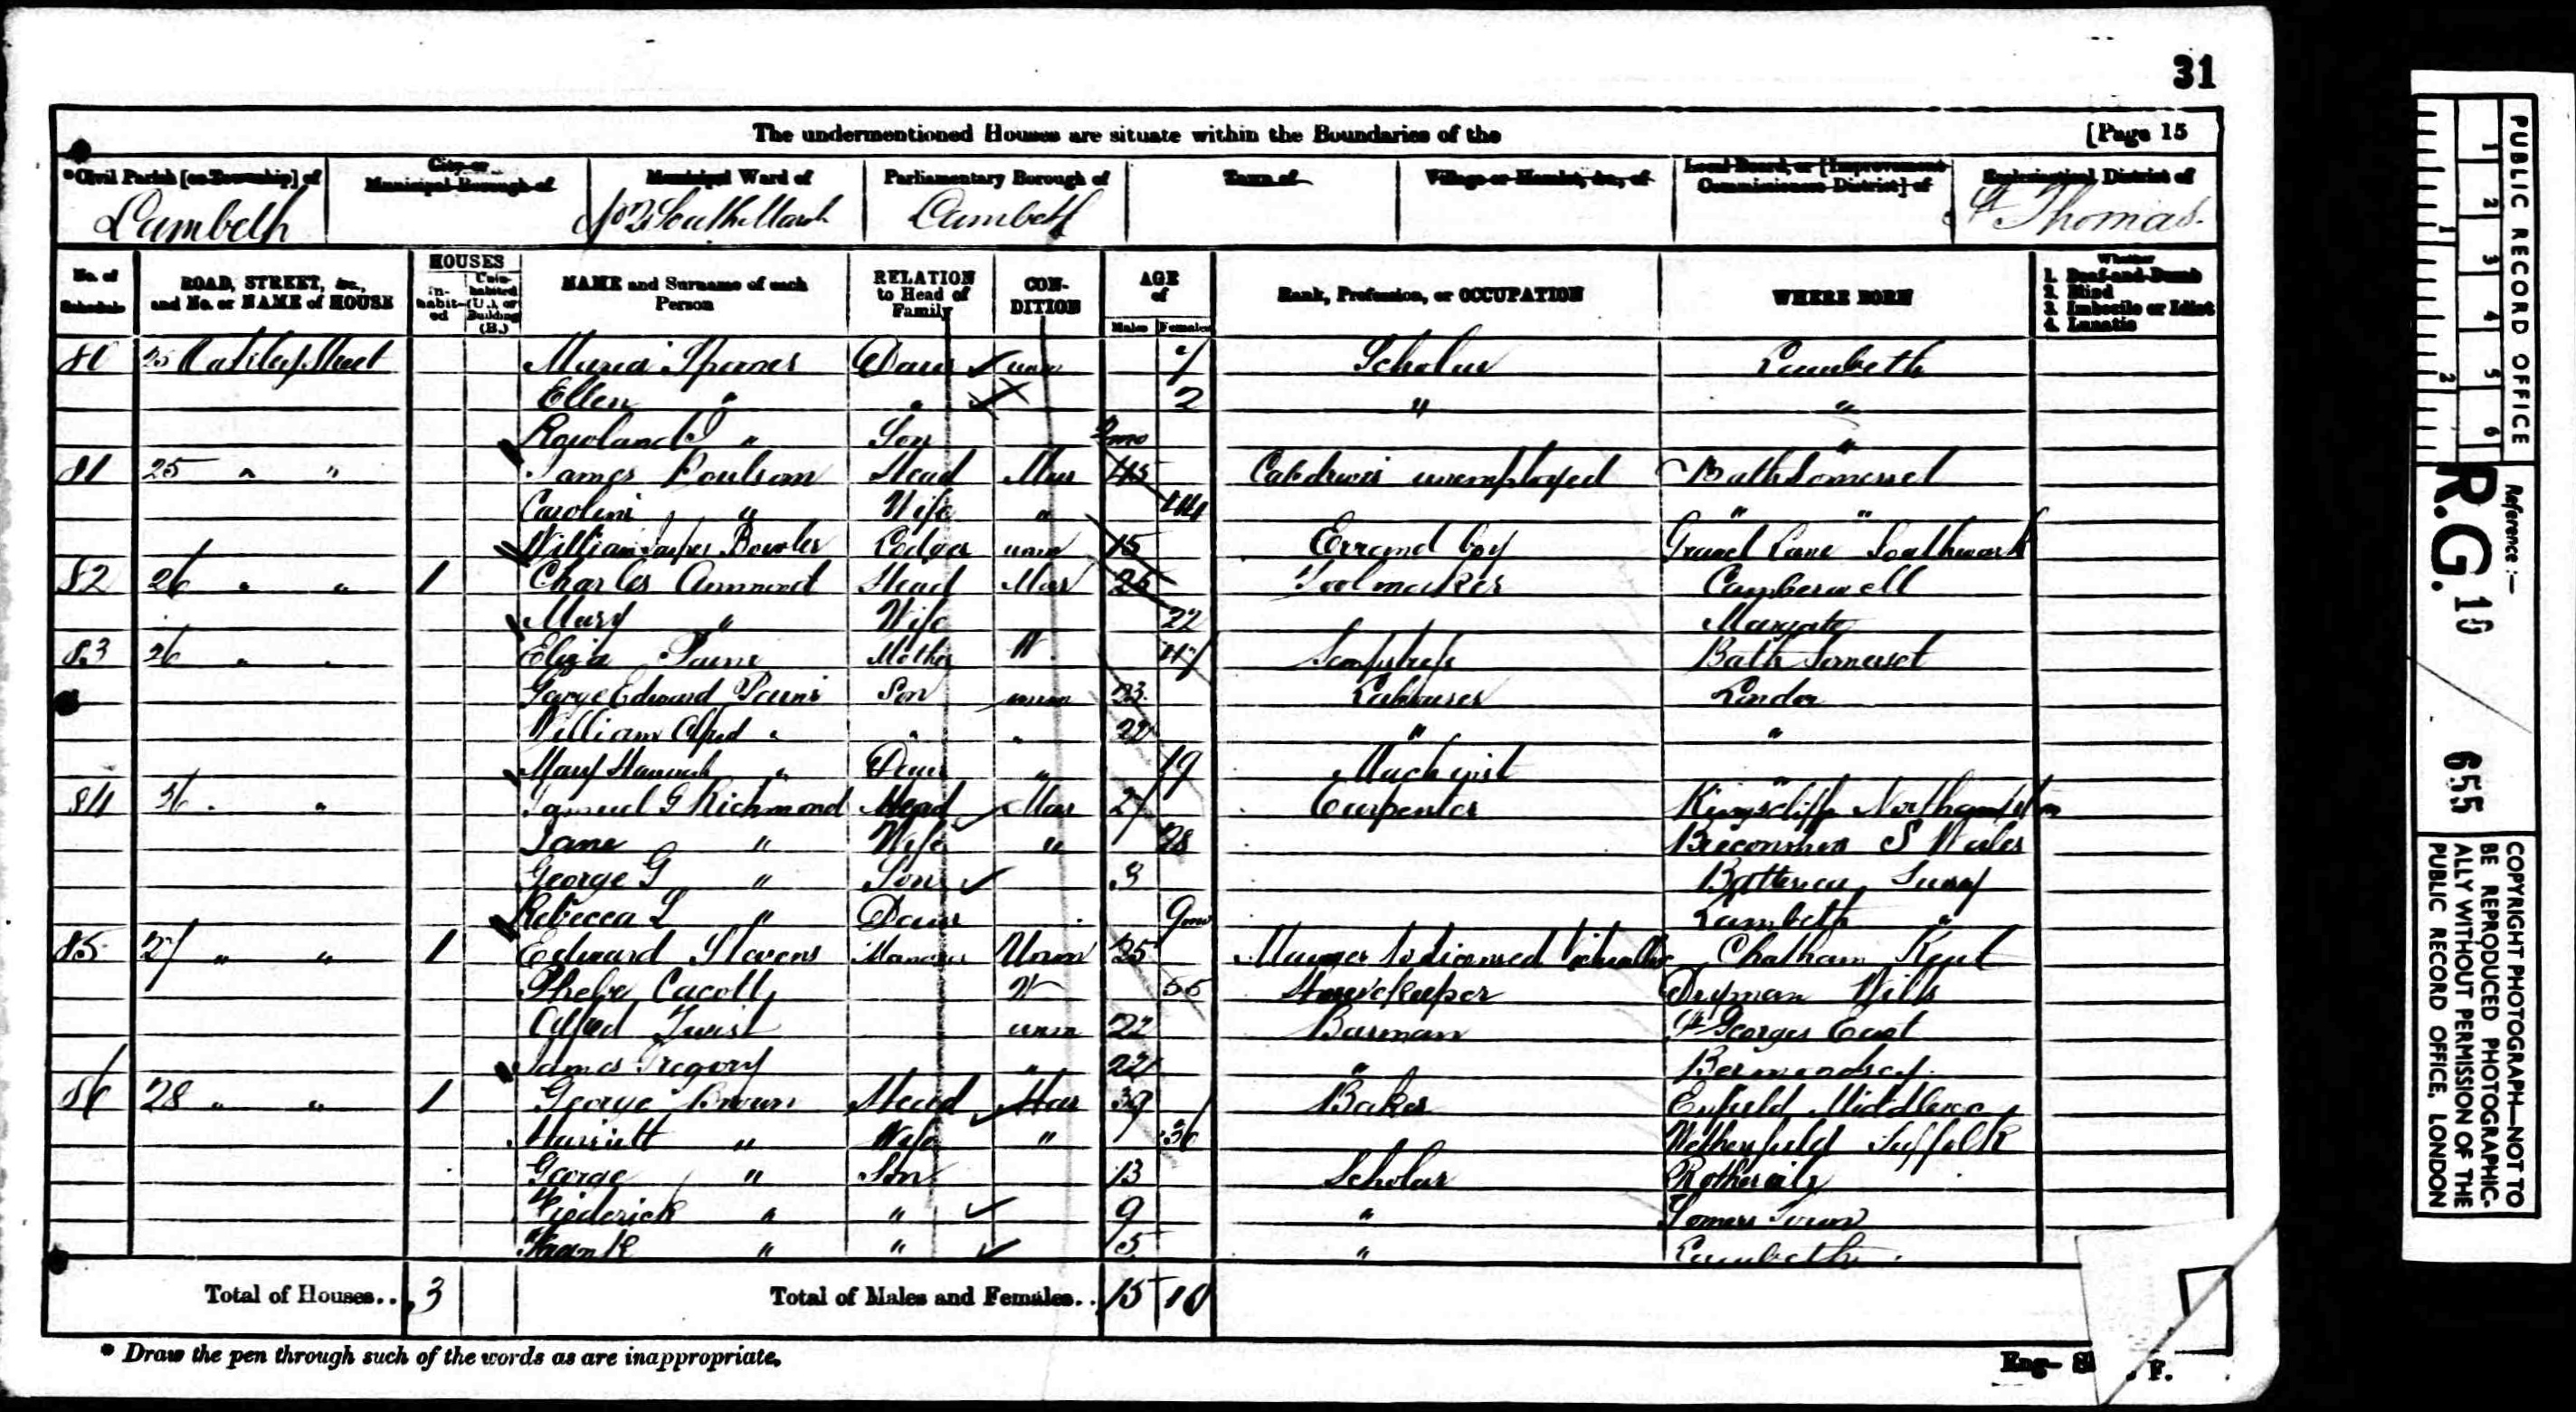 31
The undermentioned Houses are situate within the Boundaries of the [Page 15
*Civil Parish [or Township] of City or Municipal Borough of Municipal Ward of Parliamentary Borough of Town of Village or Hamlet, &c., of Local Board, or [Improvement Commissioners District] of Ecclesiastical District of
Lambeth No 2 South Marsh Lambeth St Thomas
No. of Schedule ROAD, STREET, &c., and No. or NAME of HOUSE HOUSES In-habited Unin-habited (U.), or Building (B.) NAME and Surname of each Person RELATION to Head of Family CON-DITION AGE of Males Females Rank, Profession, or OCCUPATION WHERE BORN Whether 1. Deaf-and-Dumb 2. Blind 3. Imbecile or Idiot 4. Lunatic
80 25 Street Maria Daur unm 7 Scholar Lambeth
Ellen " " 2 " "
Rowland " Son mo "
81 25 " " James Poulsom Head Mar 45 unemployed Bath Somerset
Caroline " Wife " 44 " "
William Bowler Lodger unm 15 Errand boy Gravel Lane Southwark
82 26 " " 1 Charles Head Mar 25 Toolmaker Camberwell
Mary " Wife 22 Margate
83 26 " " Eliza Mother W 47 Bath Somerset
George Edward Son unm 23 London
William Alfred " " " 22 " "
Mary Hannah " Daur " 19 Machinist "
84 26 " " Samuel G Richmond Head Mar 27 Carpenter Kingscliffe
Jane " Wife " 28 S Wales
George G " Son 3 Battersea Surrey
Rebecca L " Daur 9mo Lambeth "
85 27 " " 1 Edward Stevens Manager Unm 25 Manager to Licensed Victualler Chatham Kent
Phebe W 55 Housekeeper Wilts
Alfred Twist unm 22 Barman St Georges East
James Gregory " 22 " Bermondsey
86 28 " " 1 George Brown Head Mar 39 Baker Enfield Middlesex
Harriett " Wife " 36 Suffolk
George " Son 13 Scholar
Frederick " " 9 " Somers Town
Frank " " 5 " Lambeth
Total of Houses.. 3 Total of Males and Females.. 15 10
* Draw the pen through such of the words as are inappropriate.
Eng-
F.
PUBLIC RECORD OFFICE
1 2 3 4 5 6
1 2
Reference :—
R.G. 10 655
COPYRIGHT PHOTOGRAPH—NOT TO
BE REPRODUCED PHOTOGRAPHIC-
ALLY WITHOUT PERMISSION OF THE
PUBLIC RECORD OFFICE, LONDON